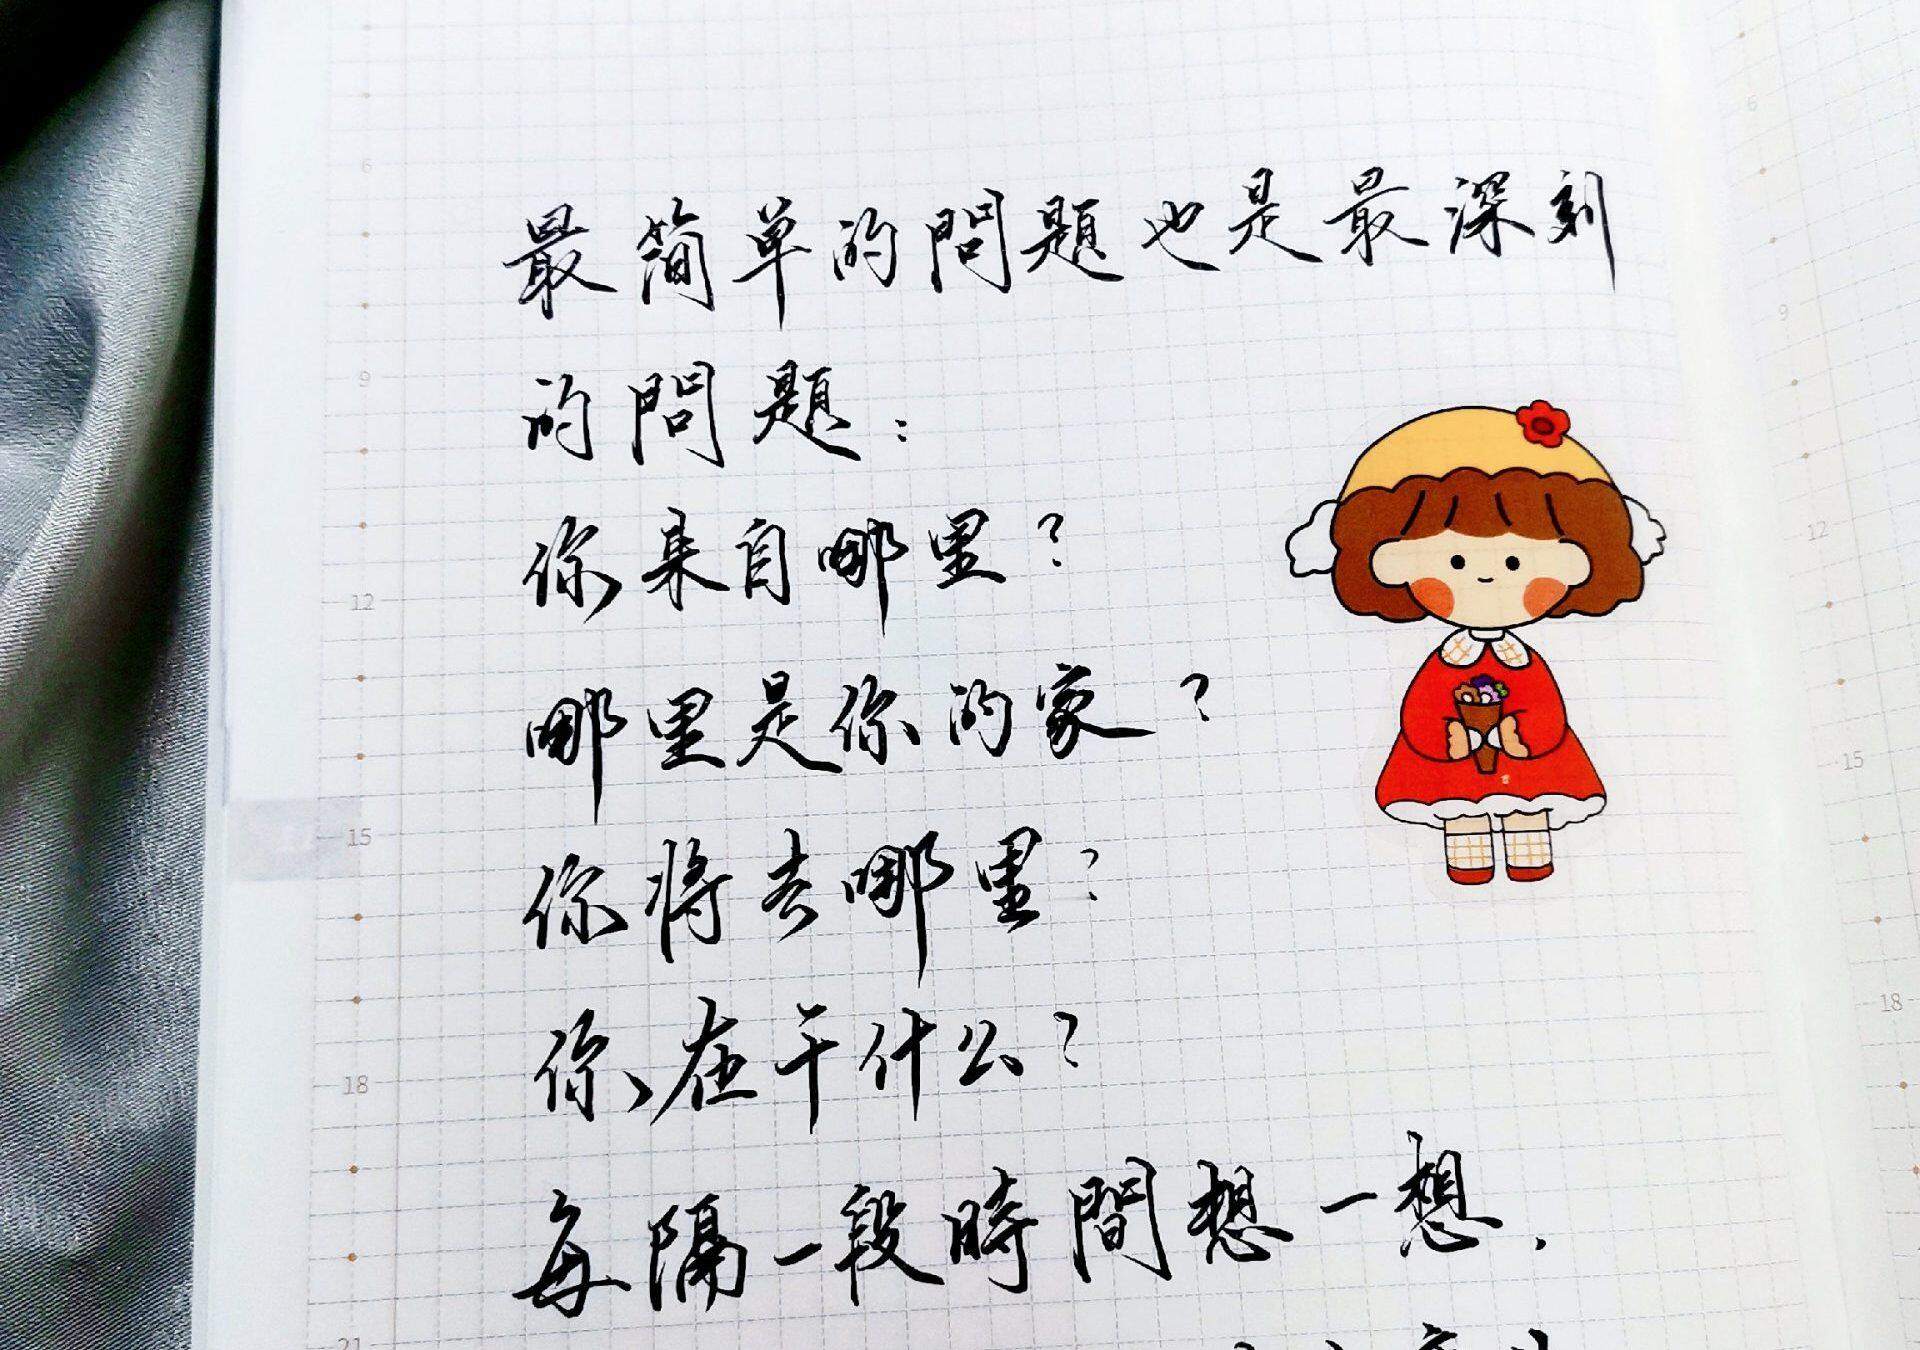 最简单的問題也是最深刻
的問題：
你来自哪里？
哪里是你的家？
你将去哪里？
你在干什么？
每隔一段時間想一想，
6
9
12
15
18
21
6
9
12
15
18